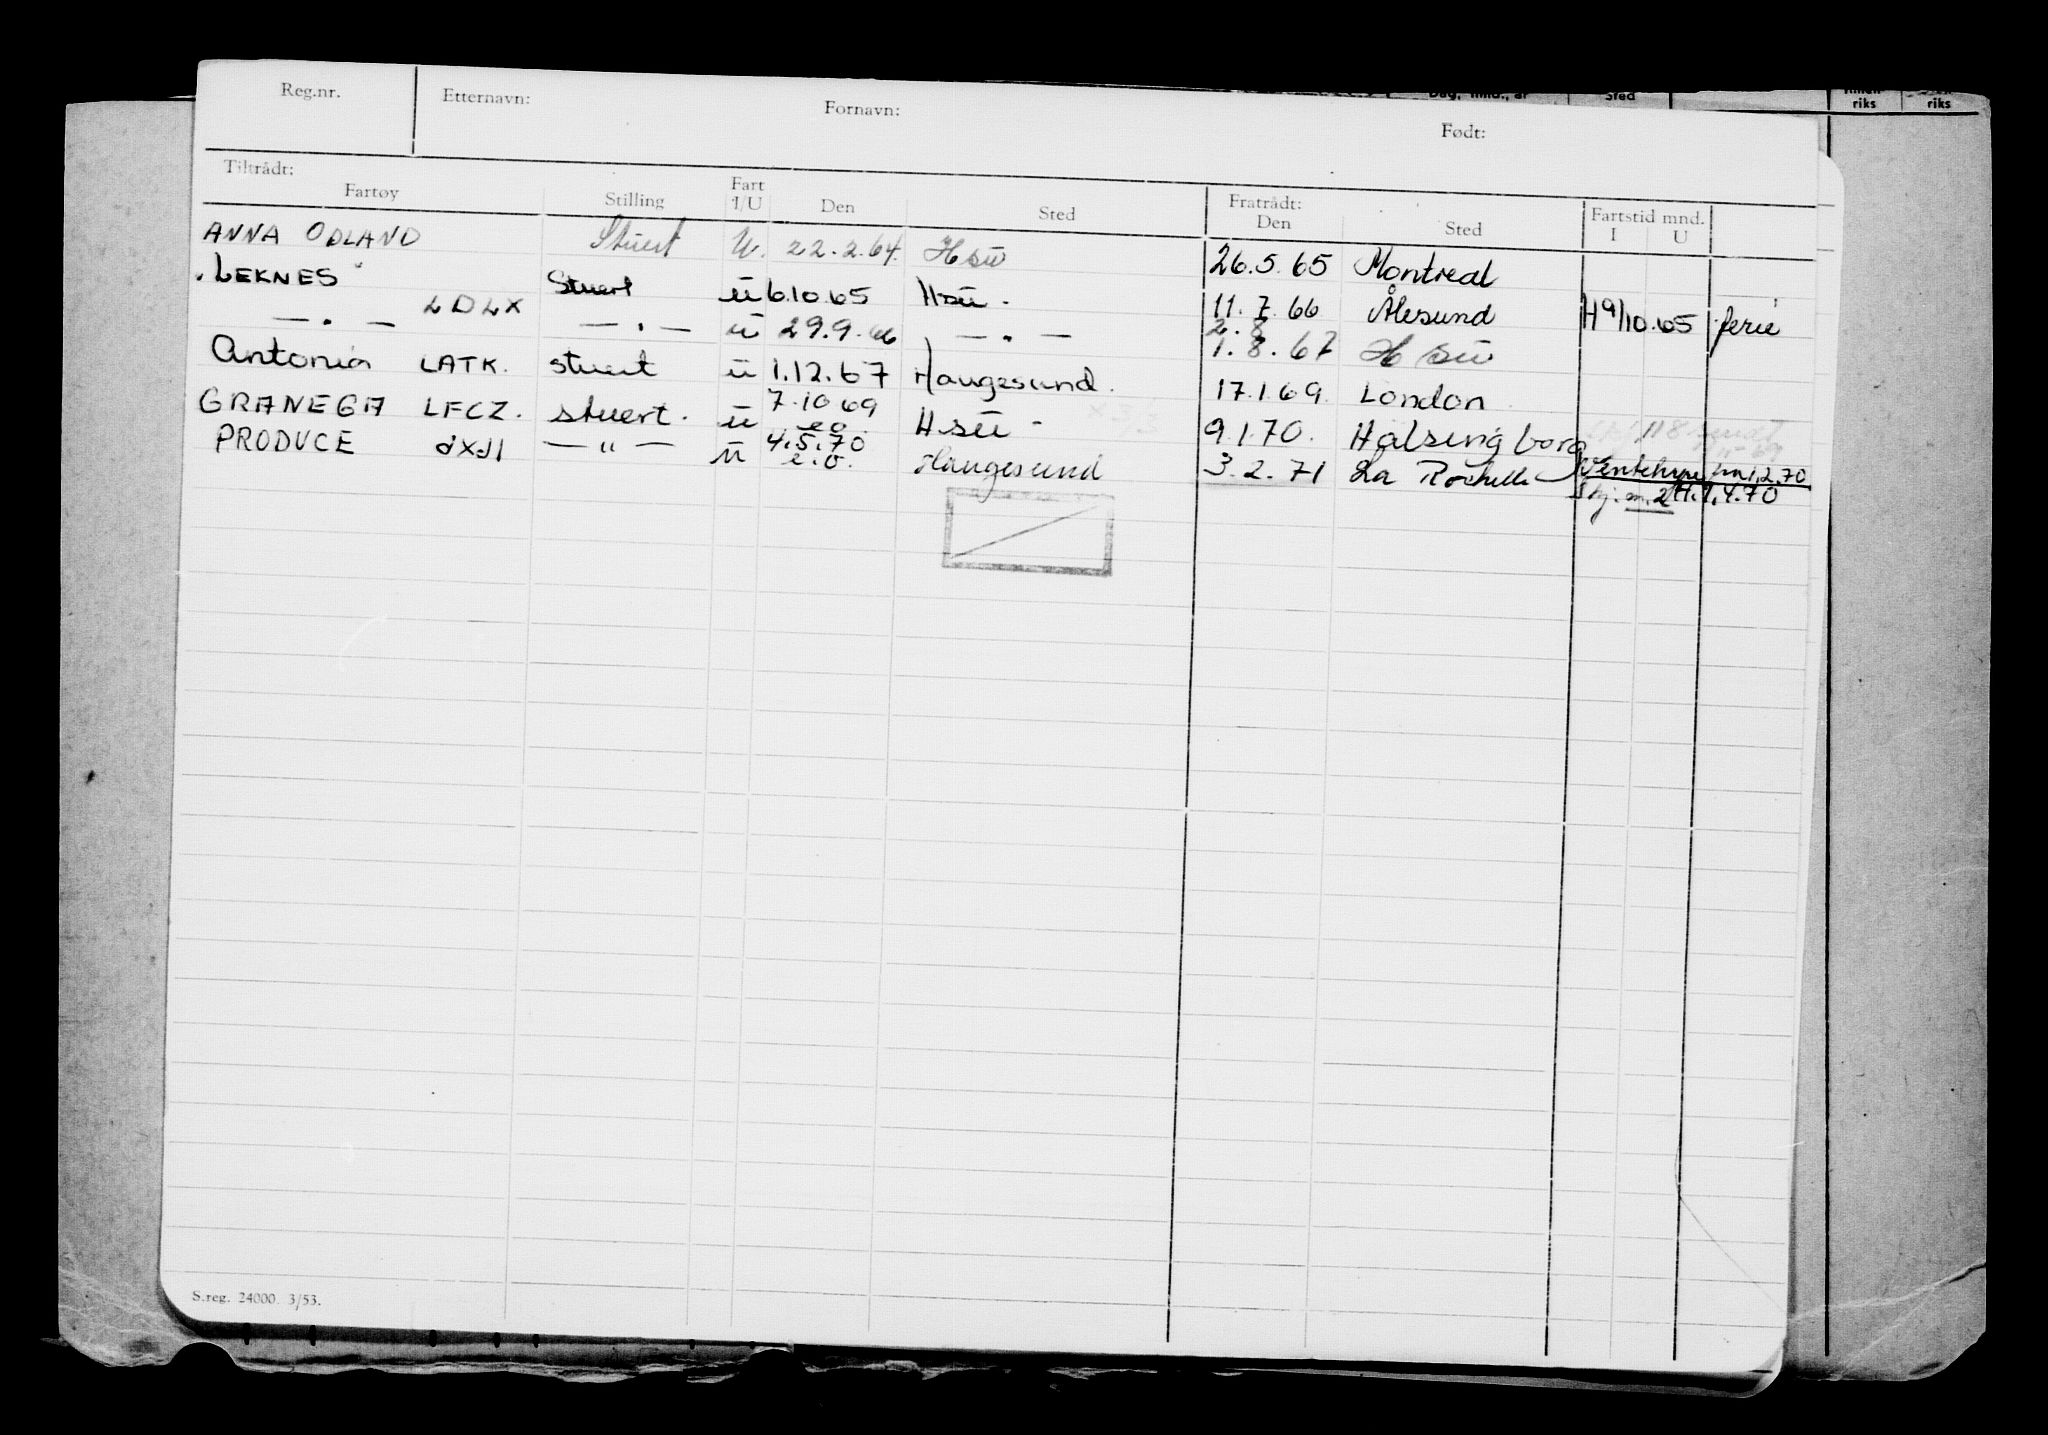 Dag, mnd., år Sted riks riks
Reg.nr. Etternavn: Fornavn: Født:
Tiltrådt: Fratrådt: Fartstid mnd.
Fartøy Stilling Fart I/U Den Sted Den Sted I U
ANNA ODLAND Stuert U. 22.2.64. Hsu 26.5.65 Montreal
"LEKNES" LDLX Stuert ū 6.10.65 Hsū - 11.7.66 Ålesund H 9/10.65 ferie
— " — — " — ū 29.9.66 — " — 2.8 1.8.67 Hsū
Antonia LATK. stuert ū 1.12.67 Haugesund. 17.1.69. London
GRANEGA LFCZ. stuert. ū 7.10.69 e.o. Hsū - 9.1.70. Hälsingborg
PRODUCE — " — ū 4.5.70 e.o. Haugesund 3.2.71 La Rochelle
1.2.70
1.4.70
S.reg. 24000. 3/53.